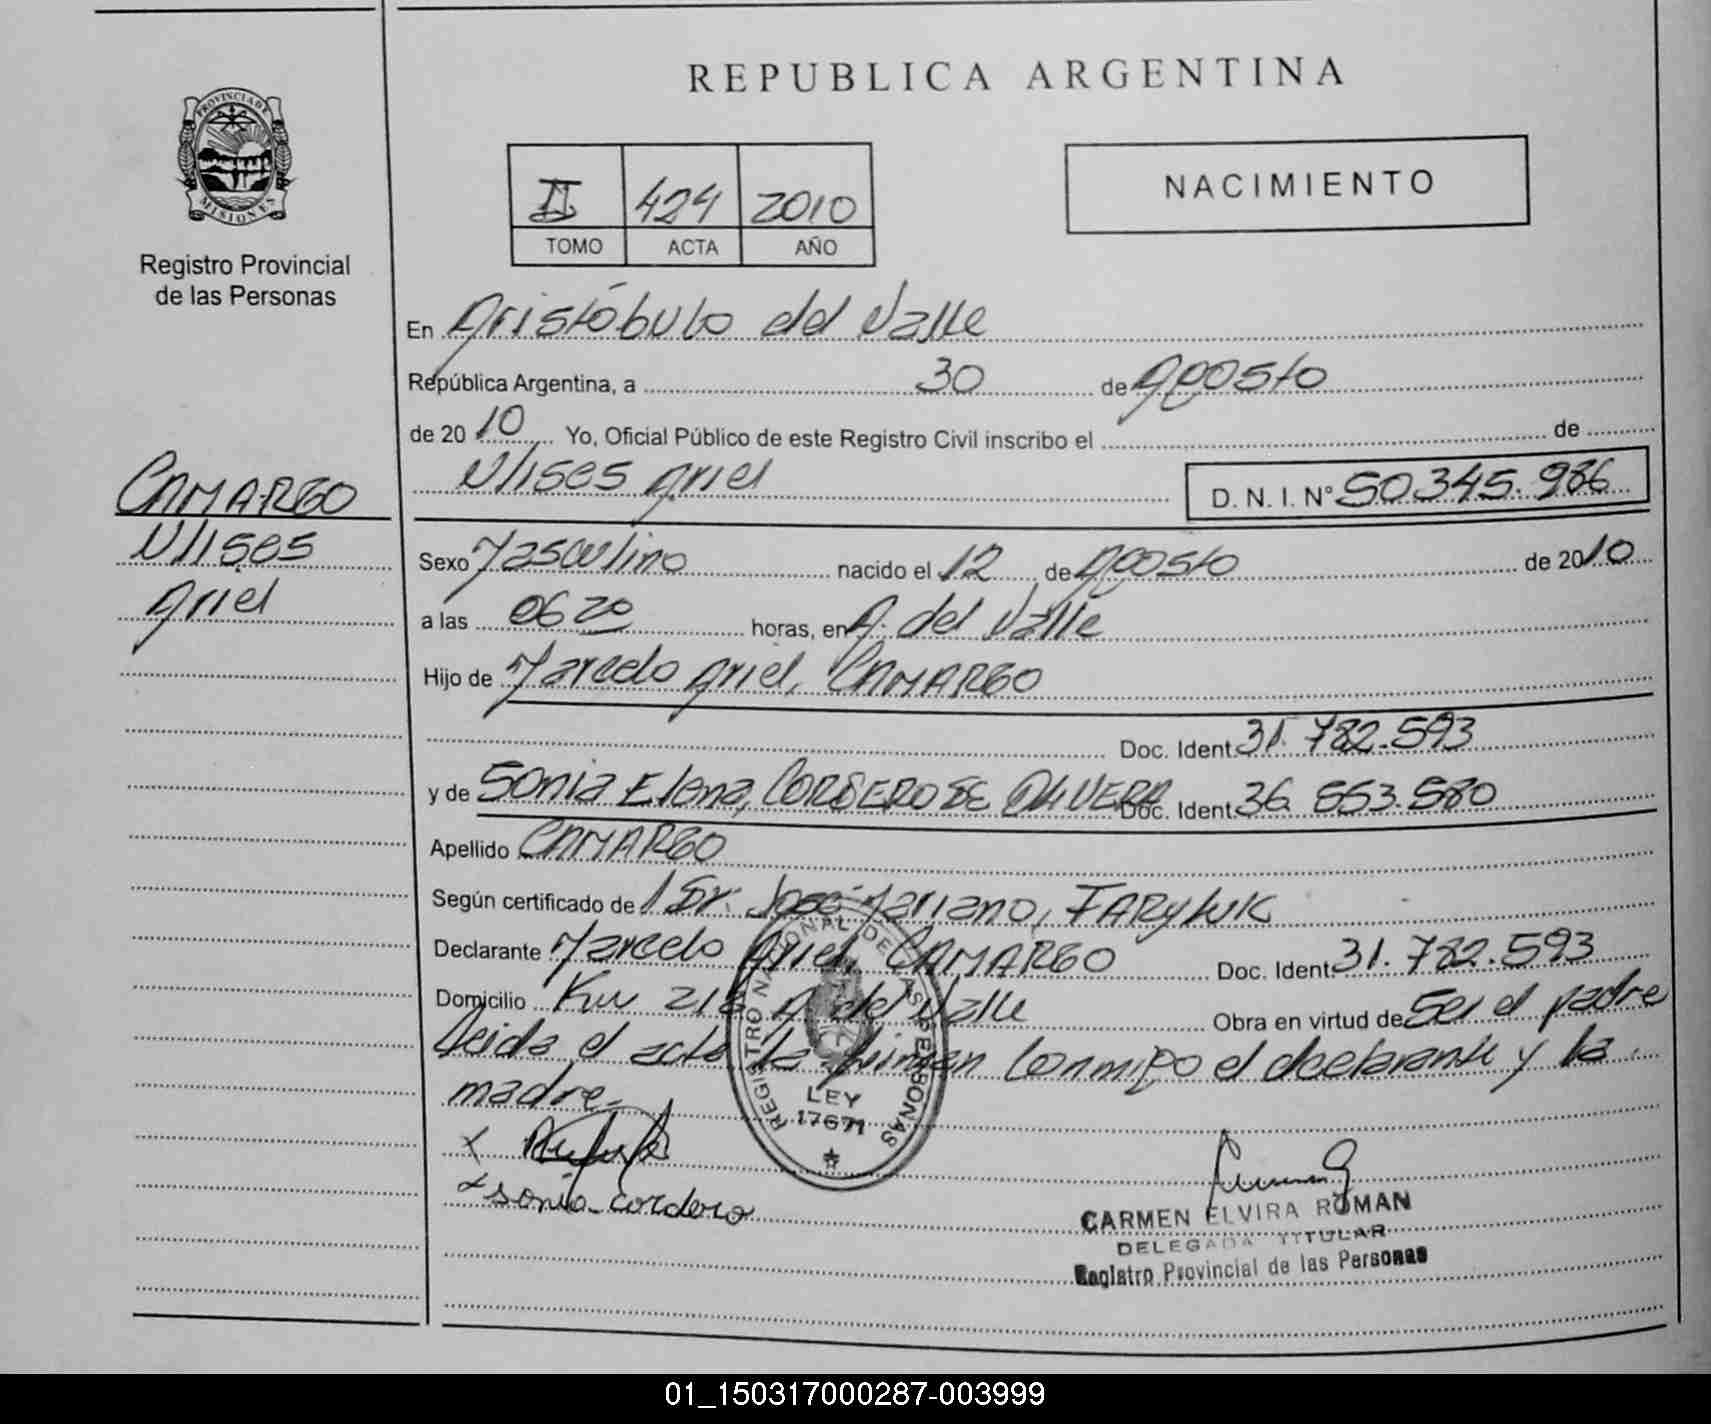 REPUBLICA ARGENTINA
PROVINCIA DE MISIONES
Registro Provincial
de las Personas
II 424 2010
TOMO ACTA AÑO
NACIMIENTO
En Aristóbulo del Valle
República Argentina, a 30 de Agosto
de 20 10 Yo, Oficial Público de este Registro Civil inscribo el de
Ulises Ariel D. N. I. Nº 50.345.986
CAMARGO
Ulises
Ariel
Sexo Masculino nacido el 12 de Agosto de 20 10
a las 06 20 horas, en A. del Valle
Hijo de Marcelo Ariel, CAMARGO
Doc. Ident. 31.782.593
y de Sonia Elena, CORDERO DE OLIVERA Doc. Ident. 36.553.580
Apellido CAMARGO
Según certificado de l Dr. José Mariano, FARYLUK
Declarante Marcelo Ariel, CAMARGO Doc. Ident. 31.782.593
Domicilio Km 218 A. del Valle Obra en virtud de Ser el padre
Leida el acta la firman conmigo el declarante y la
madre.-
REGISTRO NACIONAL DE LAS PERSONAS
LEY
17671
x
x sonia cordero
CARMEN ELVIRA ROMAN
DELEGADA TITULAR
Registro Provincial de las Personas
01_150317000287-003999